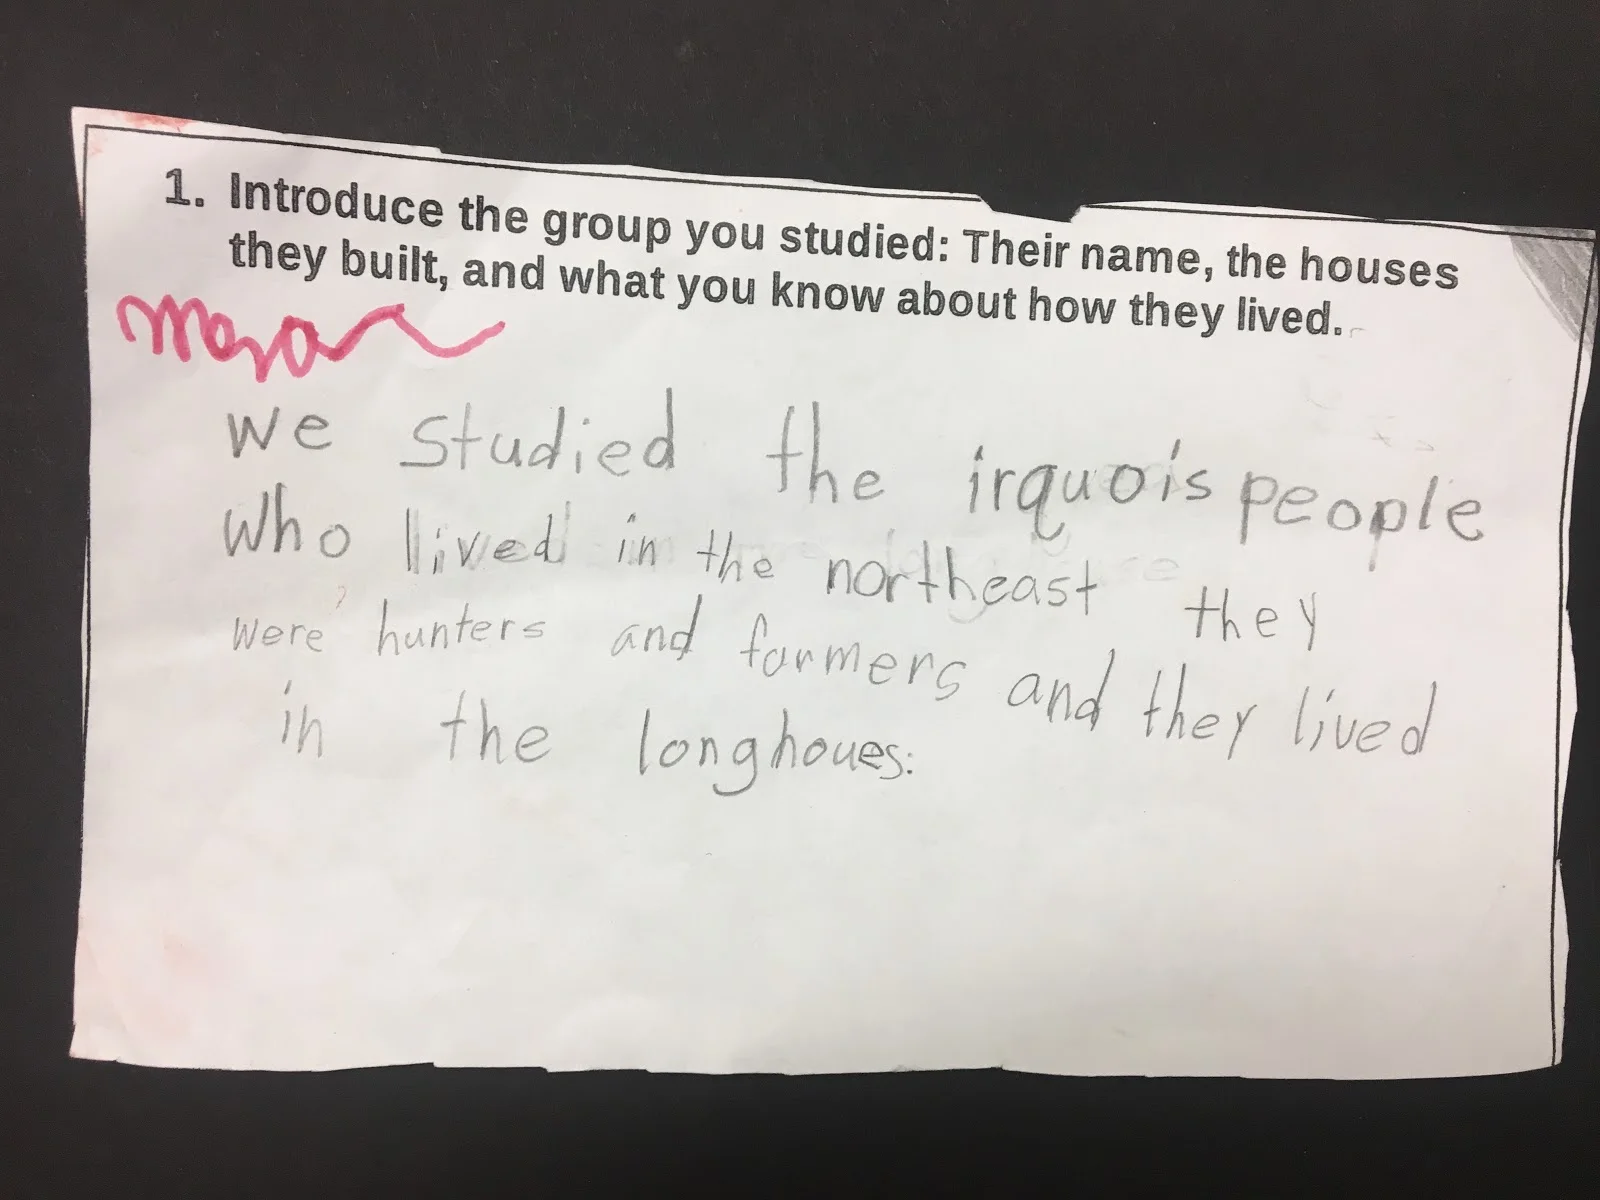 1. Introduce the group you studied: Their name, the houses
they built, and what you know about how they lived.
we studied the irquois people
who lived in the northeast they
were hunters and farmers and they lived
in the longhoues.